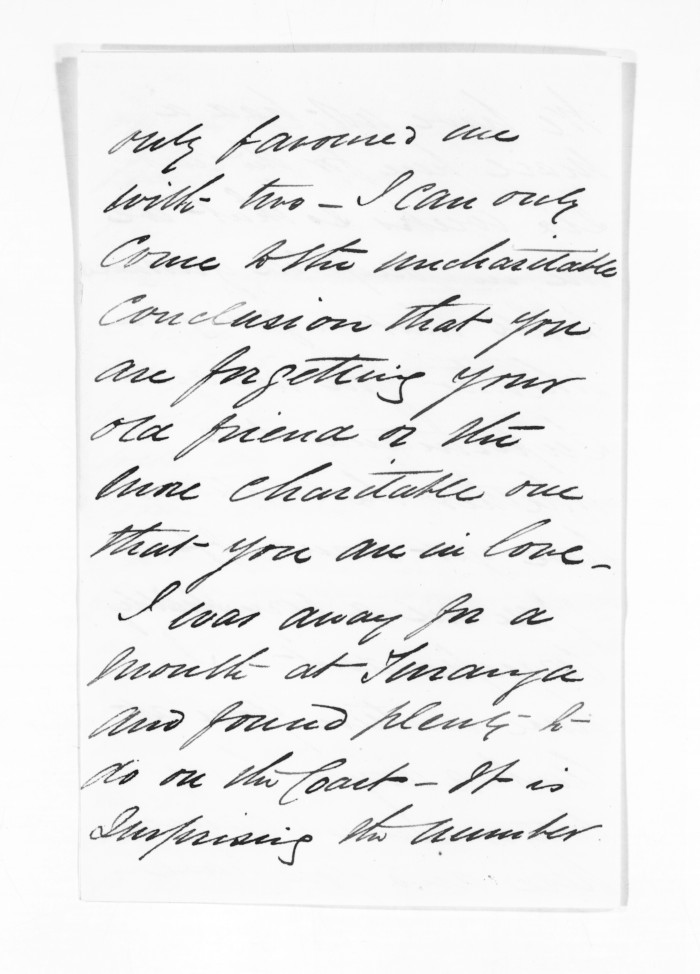 only favoured me
with two - I can only
come to the uncharitable
conclusion that you
are forgetting your
old friend or the
more charitable one
that you are in love -
I was away for a
month at Turanga
and found plenty to
do on the Coast - It is
surprising the number